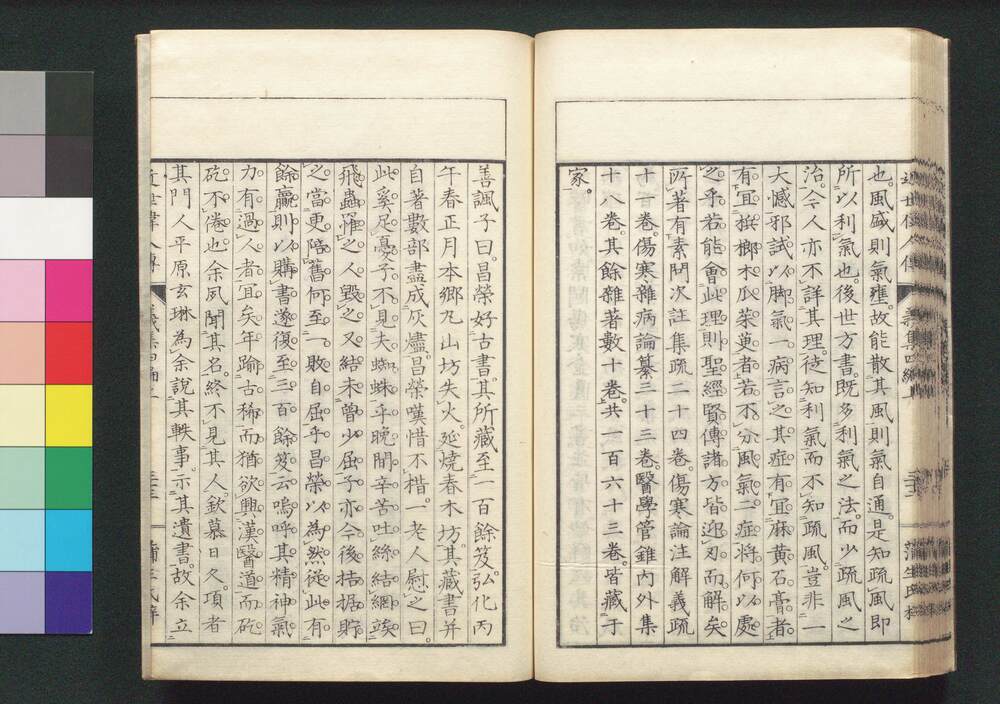 也。風盛則氣壅。故能散其風則氣自通。是知疏風即
所以利氣也。後世方書。既多利氣之法。而少疏風之
治。今人亦不詳其理。徒知利氣而不知疏風。豈非一
大憾邪。試以脚氣一病言之。其症有宜麻黃石膏者。
有宜檳榔木瓜茱萸者。若不分風氣二症。將何以處
之乎。若能會此理。則聖經賢傳諸方皆迎刃而解矣。
所著有素問次註集疏二十四卷。傷寒論注解義疏
十一卷。傷寒雜病論纂三十三卷。醫學管錐内外集
十八卷。其餘雜著數十卷。共一百六十三卷。皆藏于
家。
善諷子曰。昌榮好古書。其所藏至一百餘笈。弘化丙
午春正月本郷丸山坊失火。延燒春木坊。其藏書并
自著數部盡成灰燼。昌榮嘆惜不措。一老人慰之曰。
此奚足憂。子不見夫蜘蛛乎。晚間辛苦吐絲結網。竢
飛蟲罹之。人毀之。又結未曾少屈。子亦今後拮据貯
之。當更陪舊。何至一敗自屈乎。昌榮以為然。從此有
餘贏則以購書。遂復至三百餘笈云。嗚呼其精神氣
力有過人者宜矣。年踰古稀而猶欲興漢醫道而矻
矻不倦也。余夙聞其名。終不見其人。欽慕日久。項者
其門人平原玄琳為余說其軼事。示其遺書。故余立
近世偉人傳
義集四編